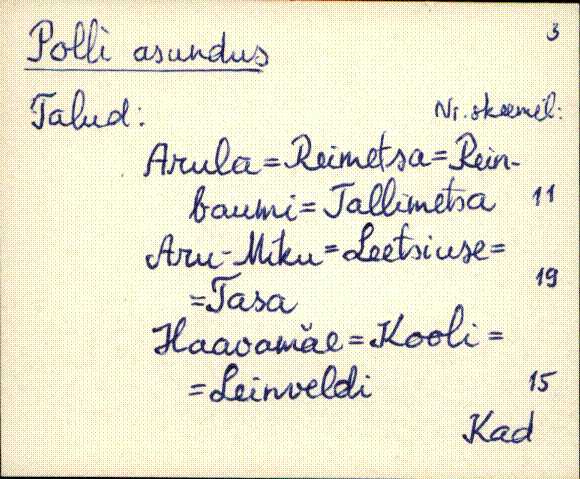 3
Polli asundus
Talud: Nr. skeemil:
Arula = Reimetsa = Rein-
baumi = Tallimetsa 11
Aru-Miku = Leetsiuse =
= Tasa 19
Haavamäe = Kooli =
= Leinveldi 15
Kad